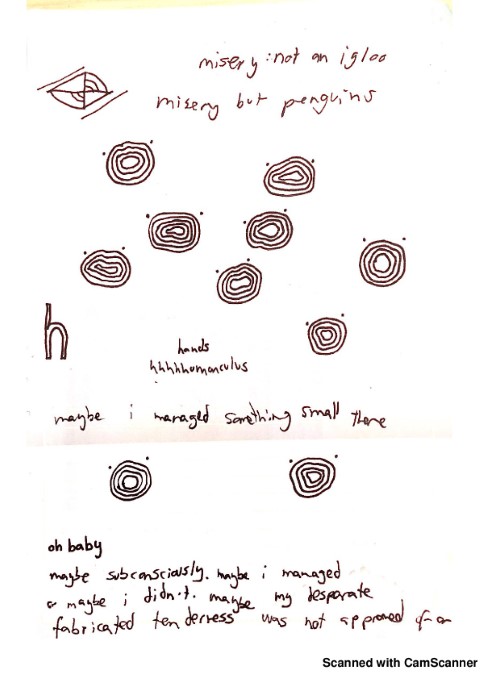 misery: not an igloo
misery but penguins
h
hands
hhhhhomonculus
maybe i managed something small there
oh baby
maybe subconsciously. maybe i managed
or maybe i didn't. maybe my desparate
fabricated tenderness was not approved of on
Scanned with CamScanner